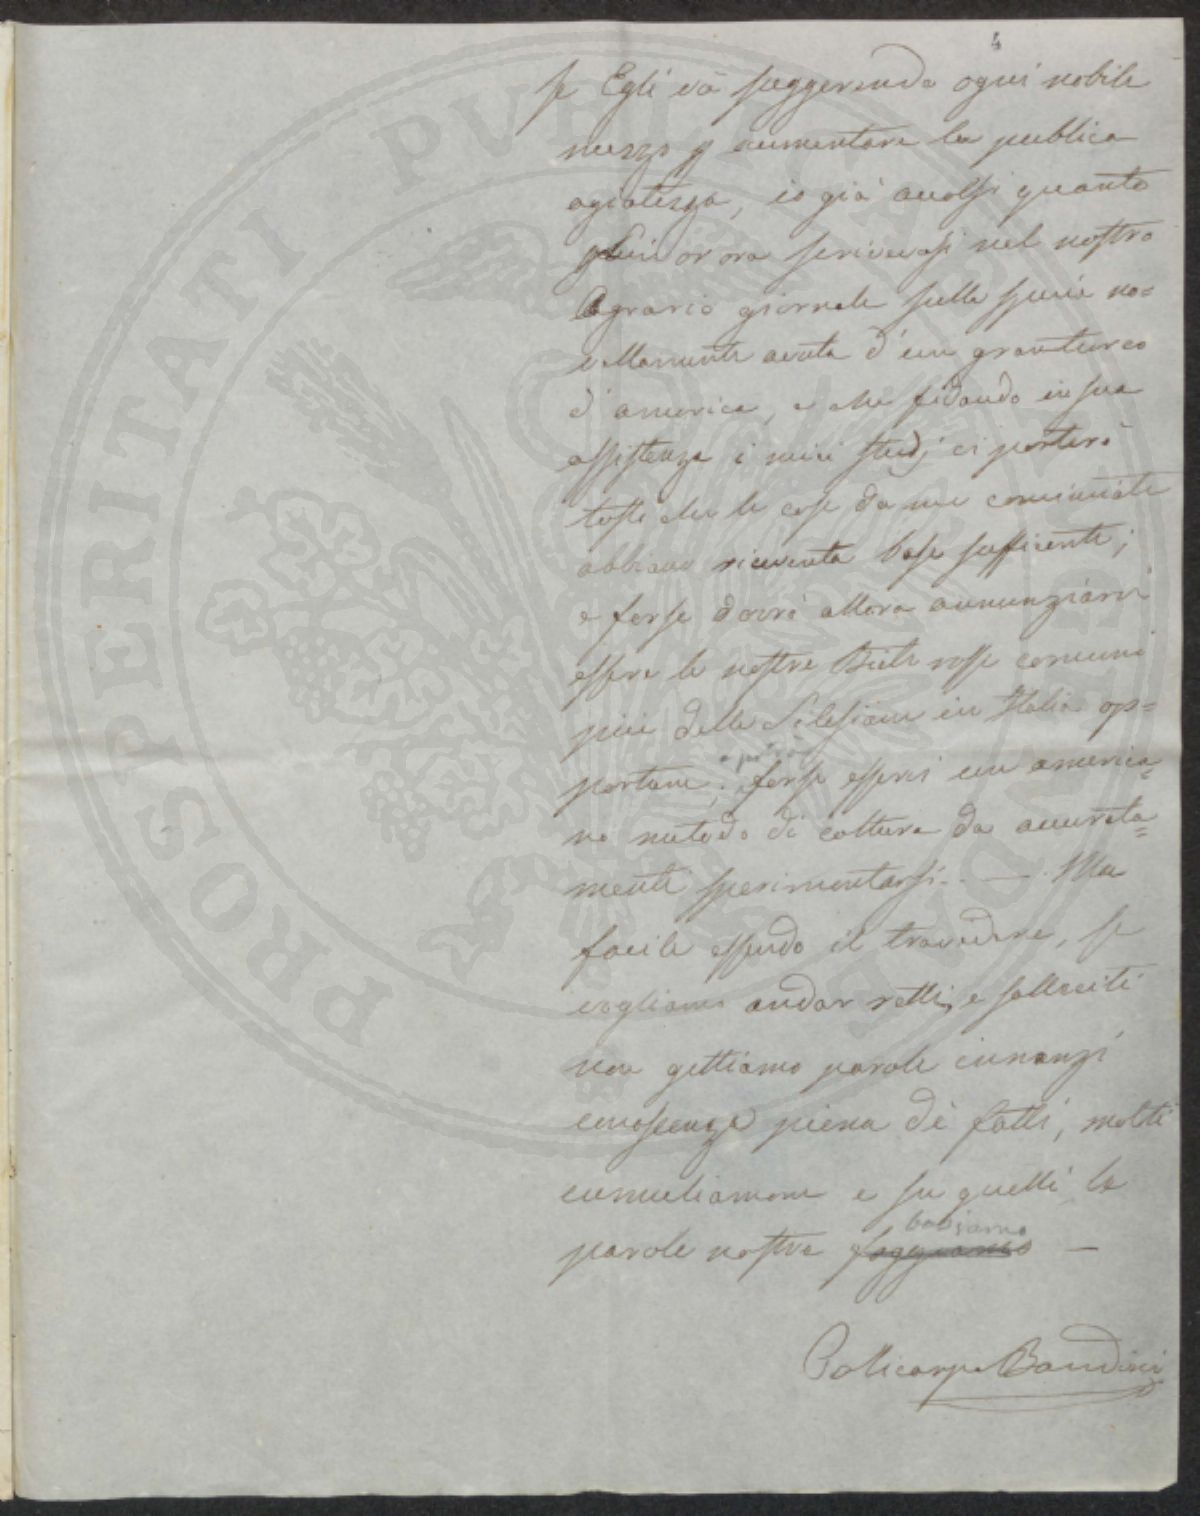 4
se Egli và suggerendo ogni nobile
mezzo p aumentare la publica
agiatezza, io già avolsi quanto
or ora scrivevasi nel nostro
Agrario giornale sulla specie no=
vellamente avuta d'un granturco
d'america, e che fidando in sua
assistenza i miei studj ci porterò
tosto che le cose da me cominciate
abbiano ricevuta base sufficente;
e forse dovrò allora annunziarvi
essere le nostre Biete rosse comuni
più delle Silesiane in Italia op=
portune; e potrà forse esservi un america=
no metodo di coltura da accurata=
mente sperimentarsi. — Ma
facile essendo il travedere, se
vogliamo andar retti, e solleciti
non gettiamo parole innanzi
conoscenza piena di fatti, molti
cumuliamone e su quelli le
parole nostre foggiamo basiamo —
Policarpo Bandini
PROSPERITATI PUBLICAE AUGENDAE